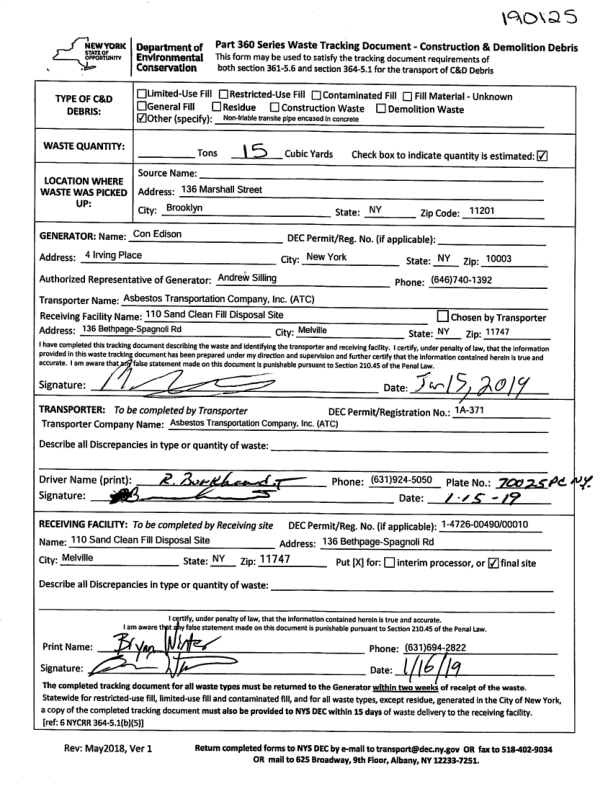 190125
NEW YORK STATE OF OPPORTUNITY
Department of Environmental Conservation
Part 360 Series Waste Tracking Document - Construction & Demolition Debris
This form may be used to satisfy the tracking document requirements of
both section 361-5.6 and section 364-5.1 for the transport of C&D Debris
TYPE OF C&D DEBRIS:
☐Limited-Use Fill ☐Restricted-Use Fill ☐Contaminated Fill ☐Fill Material - Unknown
☐General Fill ☐Residue ☐Construction Waste ☐Demolition Waste
☑Other (specify): Non-friable transite pipe encased in concrete
WASTE QUANTITY: Tons 15 Cubic Yards Check box to indicate quantity is estimated: ☑
LOCATION WHERE WASTE WAS PICKED UP:
Source Name:
Address: 136 Marshall Street
City: Brooklyn State: NY Zip Code: 11201
GENERATOR: Name: Con Edison DEC Permit/Reg. No. (if applicable):
Address: 4 Irving Place City: New York State: NY Zip: 10003
Authorized Representative of Generator: Andrew Silling Phone: (646)740-1392
Transporter Name: Asbestos Transportation Company, Inc. (ATC)
Receiving Facility Name: 110 Sand Clean Fill Disposal Site ☐ Chosen by Transporter
Address: 136 Bethpage-Spagnoli Rd City: Melville State: NY Zip: 11747
I have completed this tracking document describing the waste and identifying the transporter and receiving facility. I certify, under penalty of law, that the information
provided in this waste tracking document has been prepared under my direction and supervision and further certify that the information contained herein is true and
accurate. I am aware that any false statement made on this document is punishable pursuant to Section 210.45 of the Penal Law.
Signature: Date: Jan 15, 2019
TRANSPORTER: To be completed by Transporter DEC Permit/Registration No.: 1A-371
Transporter Company Name: Asbestos Transportation Company, Inc. (ATC)
Describe all Discrepancies in type or quantity of waste:
Driver Name (print): Phone: (631)924-5050 Plate No.: 70025PC NY.
Signature: Date: 1-15-19
RECEIVING FACILITY: To be completed by Receiving site DEC Permit/Reg. No. (if applicable): 1-4726-00490/00010
Name: 110 Sand Clean Fill Disposal Site Address: 136 Bethpage-Spagnoli Rd
City: Melville State: NY Zip: 11747 Put [X] for: ☐ interim processor, or ☑ final site
Describe all Discrepancies in type or quantity of waste:
I certify, under penalty of law, that the information contained herein is true and accurate.
I am aware that any false statement made on this document is punishable pursuant to Section 210.45 of the Penal Law.
Print Name: Bryan Winter Phone: (631)694-2822
Signature: Date: 1/16/19
The completed tracking document for all waste types must be returned to the Generator within two weeks of receipt of the waste.
Statewide for restricted-use fill, limited-use fill and contaminated fill, and for all waste types, except residue, generated in the City of New York,
a copy of the completed tracking document must also be provided to NYS DEC within 15 days of waste delivery to the receiving facility.
[ref: 6 NYCRR 364-5.1(b)(5)]
Rev: May2018, Ver 1 Return completed forms to NYS DEC by e-mail to transport@dec.ny.gov OR fax to 518-402-9034
OR mail to 625 Broadway, 9th Floor, Albany, NY 12233-7251.